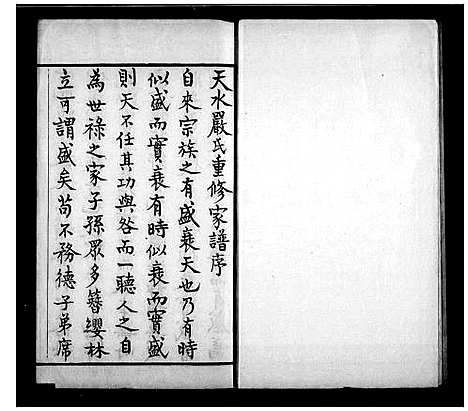 天水嚴氏重修家譜序
自來宗族之有盛衰天也乃有時
似盛而實衰有時似衰而實盛
則天不任其功與咎而一聽人之自
為世祿之家子孫眾多簪纓林
立可謂盛矣苟不務德子弟席